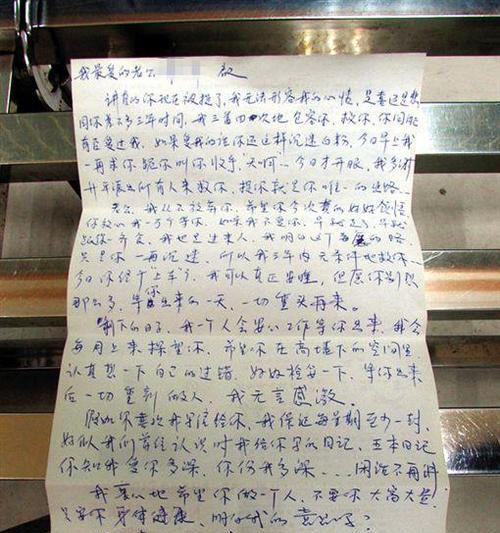 我最爱的老公 启
讲真的你现在被捉了，我无法形容我的心情，是喜还是悲
同你差不多三年时间，我三番四次地包容你，救你，你问你
有否爱过我，如果爱我的话你还这样沉迷白粉，今日早上我
一再求你，跪你叫你收手，天啊，今日才开眼，我
年派出所有人来救你，捉你就是你唯一的出路
老公，我从不放弃你，希望你今次真的好好领悟
你放心我一定等你，如果我不要你，早就走了，早就
我也是过来人，我明白这个
只是你一再沉迷，所以我三年内无条件地救你，
今日你终于上车了，我可以真正安睡，但愿你别想
那么多，等你出来的一天，一切重头再来。
剩下的日子，我一个人会安心工作等你出来，我会
每月上来探望你，希望你在高墙下的空间里
认真想一下自己的过错，好好检讨一下，等你出来
后一切重新做人，我无言感激。
假如你喜欢我写信给你，我保证每星期至少一封，
好似我们首往认识时我给你写的日记，五本日记
你知我爱你多深，你伤我多深……闲话不再讲
我真心地希望你做一个人，不要你大富大贵，
只要你身体健康，明白我的意思吗？